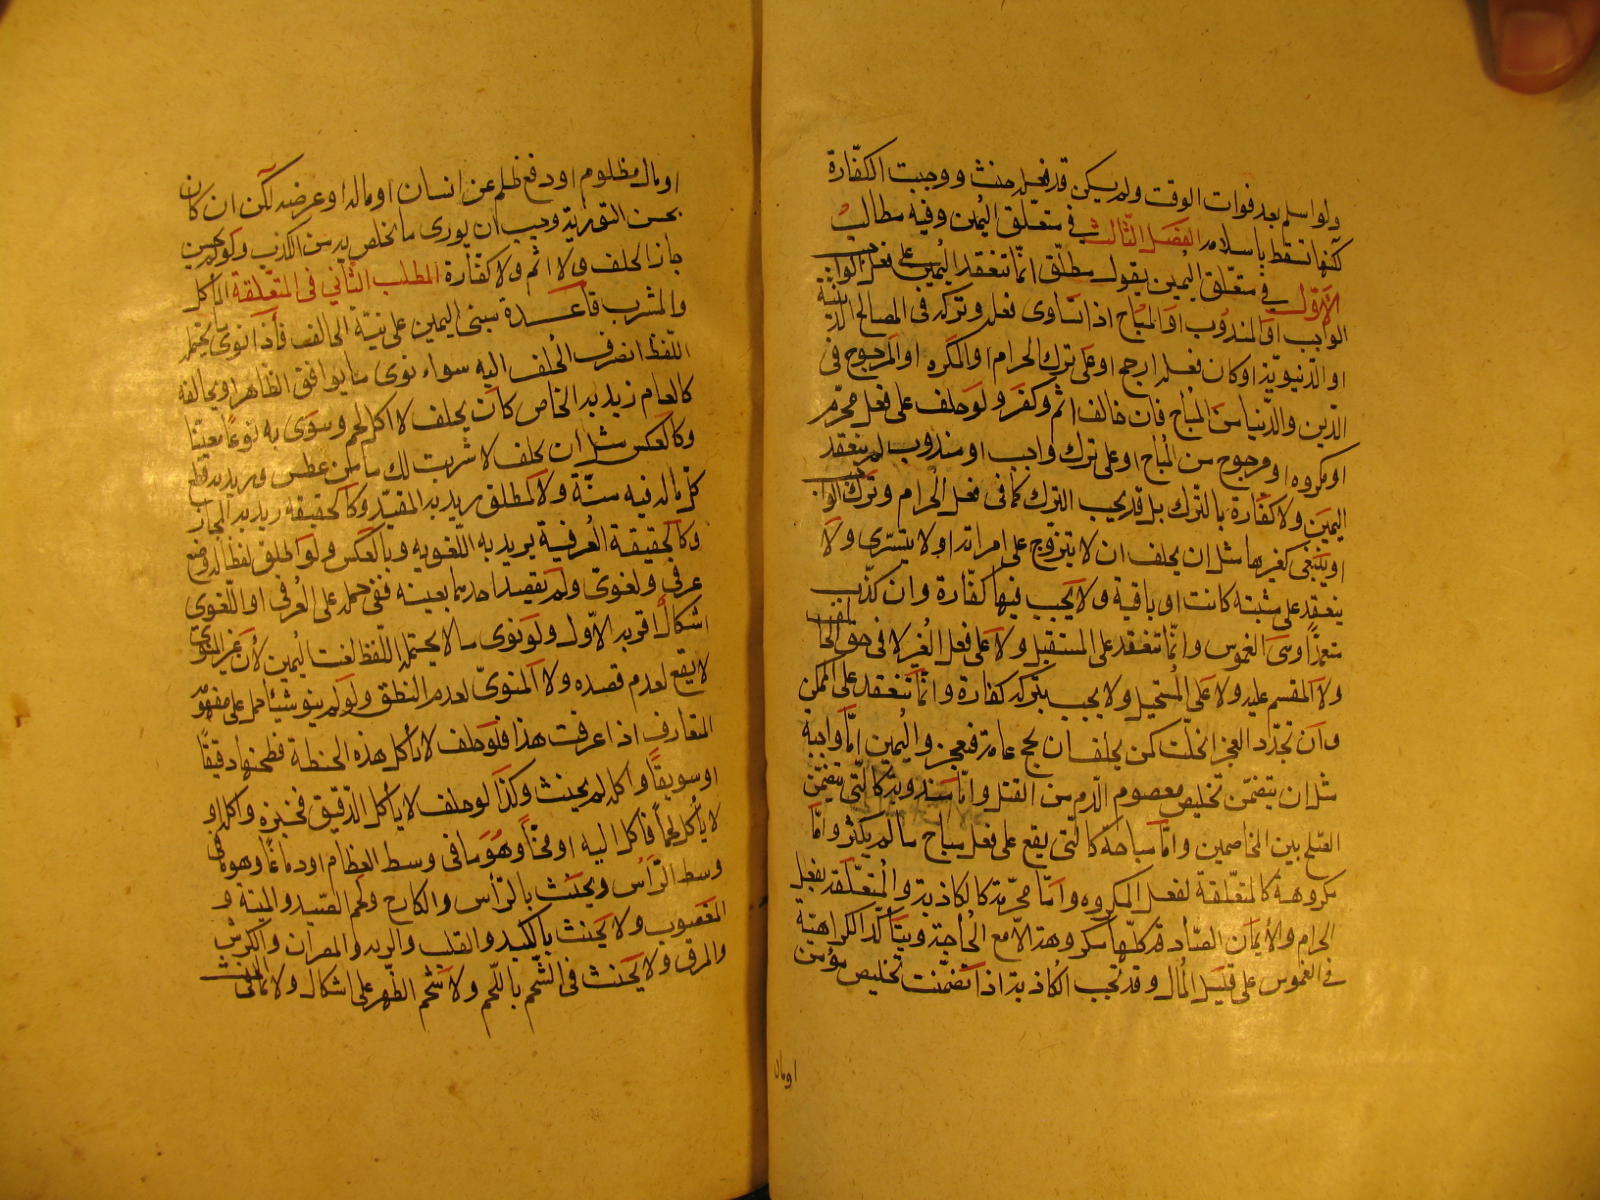 ولو اسلم بعد فوات الوقت ولم يكن قد فعل حنث ووجبت الكفّارة
لكنها تسقط باسلامه الفصل الثّالث في متعلّق اليمين وفيه مطالب
الاوّل في متعلّق اليمين بقول مطلق انّما تنعقد اليمين على فعل الواجب
الواجب او المندوب او المباح اذا تساوى فعله وتركه في المصالح الدّينيّة
او الدّنيويّة او كان فعله ارجح او على ترك الحرام او المكره او المرجوح في
الدّين والدّنيا من المباح فان خالف اثم وكفر ولو حلف على فعل محرّم
او مكروه او مرجوح من المباح او على ترك واجب او مندوب لم ينعقد
اليمين ولا كفّارة بالتّرك بل قد يجب الترك كما في فعل الحرام وترك الواجب
او ينبغي كغيرها مثل ان يحلف ان لا يتزوج على امراته او لا يتسّرى ولا
ينعقد على مثبته كانت او باقية ولا يجب فيها كفّارة وان كذّب
متعمّداً وهى الغموس وانّما تنعقد على المستقبل ولا على فعل الغير لا في حق الحالف
ولا المقسم عليه ولا على المستحيل ولا يجب بتركه كفارة وانّما تنعقد على الممكن
وان تجدّد العجز انحلّت كمن يحلف ان يحج عامه فيعجز واليمين امّا واجبة
مثل ان يتضمّن تخليص معصوم الدّم من القتل وامّا مندوبة كالّتي يتضمّن
الصّلح بين المتخاصمين وامّا مباحة كالّتي يقع على فعل مباح ما لم يكثر وامّا
مكروهة كالمتعلّقة لفعل المكروه وامّا محرّمة كالكاذبة والمتعلّقة لفعل
الحرام والأيمان الصّادقة كلّها مكروهة الّا مع الحاجة ويتاكّد الكراهيّة
في الغموس على قليل المال وقد تجب الكاذبة اذا تضمّنت تخليص مؤمن
او مال
او مال مظلوم او دفع ظلم عن انسان او ماله او عرضه لكن ان كان
يحسن التورية وجب ان يورى ما يخلص به من الكذب ولو لم يحسن
جاز الحلف ولا اثم ولا كفّارة المطلب الثّاني في المتعّلقة المأكل
والمشرب قاعدة تبنى اليمين على نيّة الحالف فاذا نوى ما يحتمله
اللّفظ انصرف الحلف اليه سواء نوى ما يوافق الظاهر او يخالفه
كالعام يريد به الخاص كان يحلف لا اكل لحم ونوى به نوعاً معيّناً
وكالعكس مثل ان يحلف لا شربت لك ماء من عطش ويريد به قطع
كل ماله فيه منّة ولا كمطلق يريد به المقيّد وكالحقيقة يريد به المجاز
وكالحقيقة العُرفية يريد به اللّغويه وبالعكس ولو اطلق لفظ له وضع
عرفي ولغويّ ولم يقصد احدهما بعينه ففي حمله على العُرفي او اللّغوي
اشكال اقربه الاوّل ولو نوى ما لا يحتمله اللّفظ لغت اليمين لأن غير المنوي
لا يقع لعدم قصده ولا المنويّ لعدم النطق ولو لم ينو شيئاً حمل على مفهومه
المتعارف اذا عرفت هذا فلو حلف لا يأكل هذه الحنطة فطحنها دقيقًا
او سويقًا واكله لم يحنث وكذا لو حلف لا يأكل الدّقيق فخبزه واكله و
لا يأكل لحماً فاكل الية او مخّاً وهو ما في وسط العظام او دماغًا وهو ما في
وسط الرّأس ويحنث بالرّأس والكارع ولحم الصّيد والميتة و
المغصوب ولا يحنث بالكبد والقلب والريه والمصران والكرش
والمرق ولا يحنث في الشّحم باللّحم ولا شحم الظهر على اشكال ولا